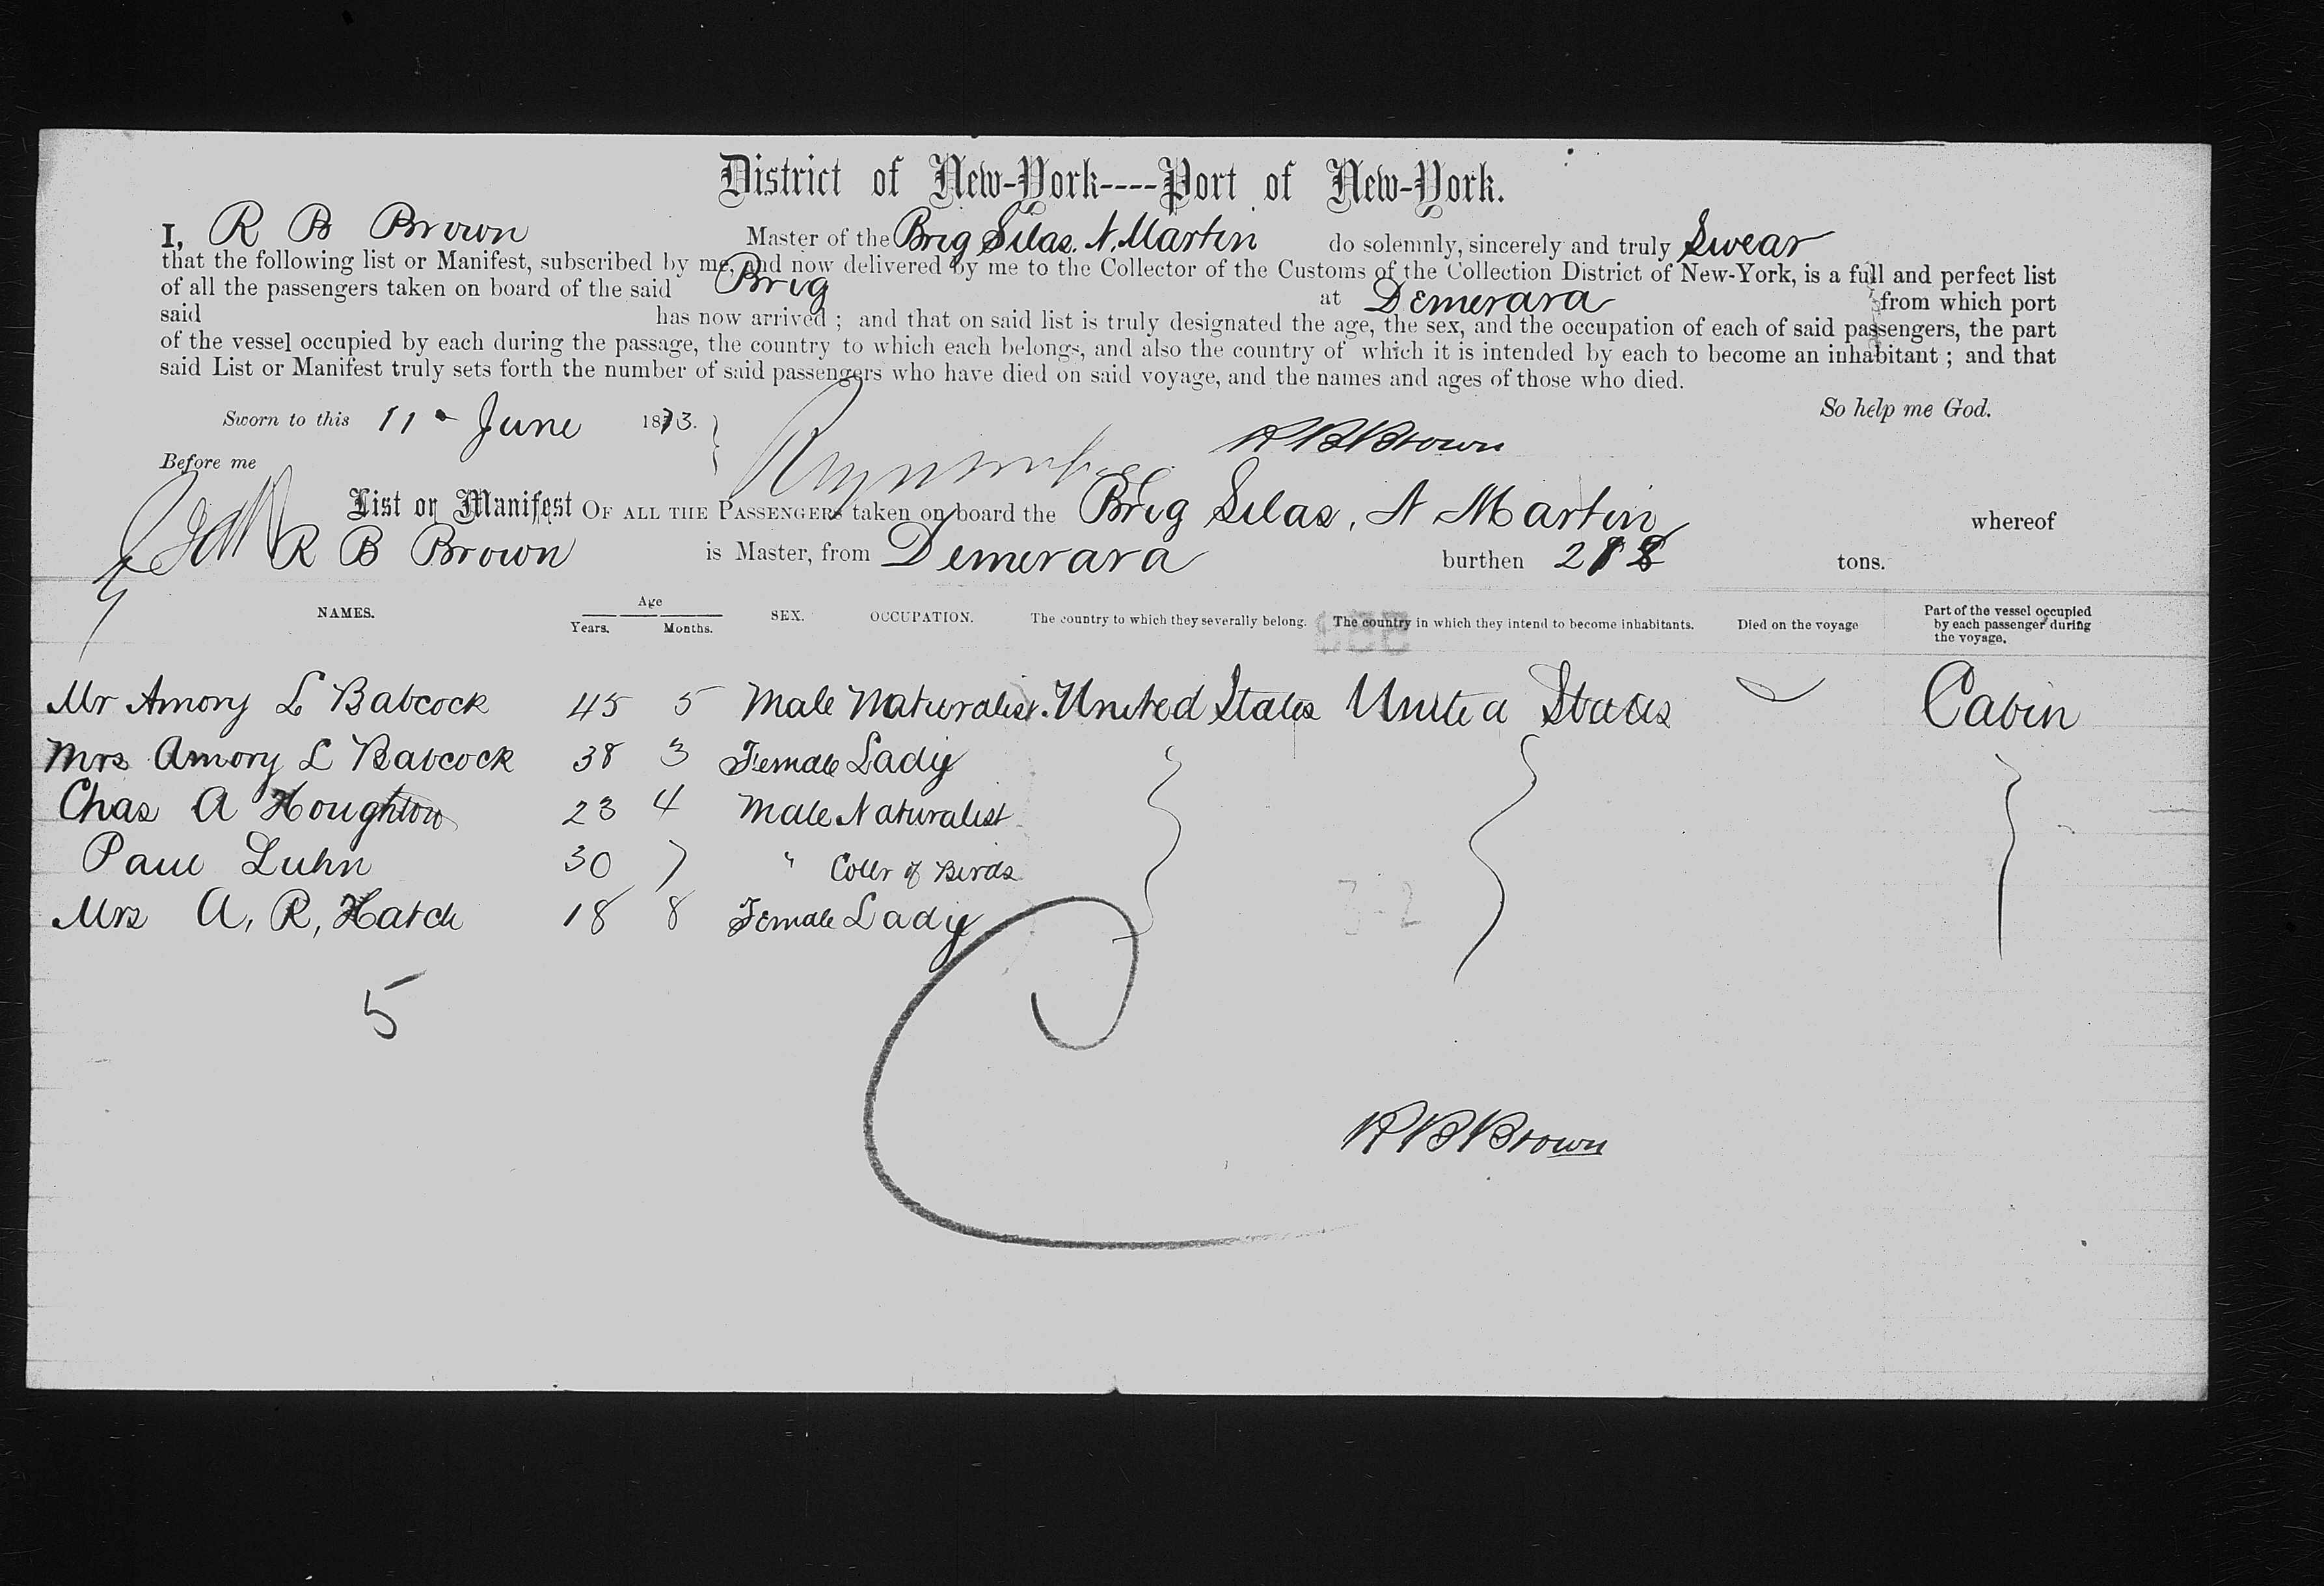 District of New-York----Port of New-York.
I, R B Brown Master of the Brig Silas. N. Martin do solemnly, sincerely and truly Swear
that the following list or Manifest, subscribed by me, and now delivered by me to the Collector of the Customs of the Collection District of New-York, is a full and perfect list
of all the passengers taken on board of the said Brig at Demerara from which port
said has now arrived ; and that on said list is truly designated the age, the sex, and the occupation of each of said passengers, the part
of the vessel occupied by each during the passage, the country to which each belongs, and also the country of which it is intended by each to become an inhabitant ; and that
said List or Manifest truly sets forth the number of said passengers who have died on said voyage, and the names and ages of those who died.
So help me God.
Sworn to this 11 June 1873.
R B Brown
Before me
List or Manifest OF ALL THE PASSENGERS taken on board the Brig Silas, N Martin whereof
R B Brown is Master, from Demerara burthen tons.
NAMES. Age Years. Months. SEX. OCCUPATION. The country to which they severally belong. The country in which they intend to become inhabitants. Died on the voyage Part of the vessel occupied by each passenger during the voyage.
Mr Amory L Babcock 45 5 Male Naturalist. United States United States Cabin
Mrs Amory L Babcock 38 3 Female Lady
Chas A Houghton 23 4 Male Naturalist
Paul Luhn 30 7 " Collr of Birds
Mrs A, R, Hatch 18 8 Female Lady
5
R B Brown